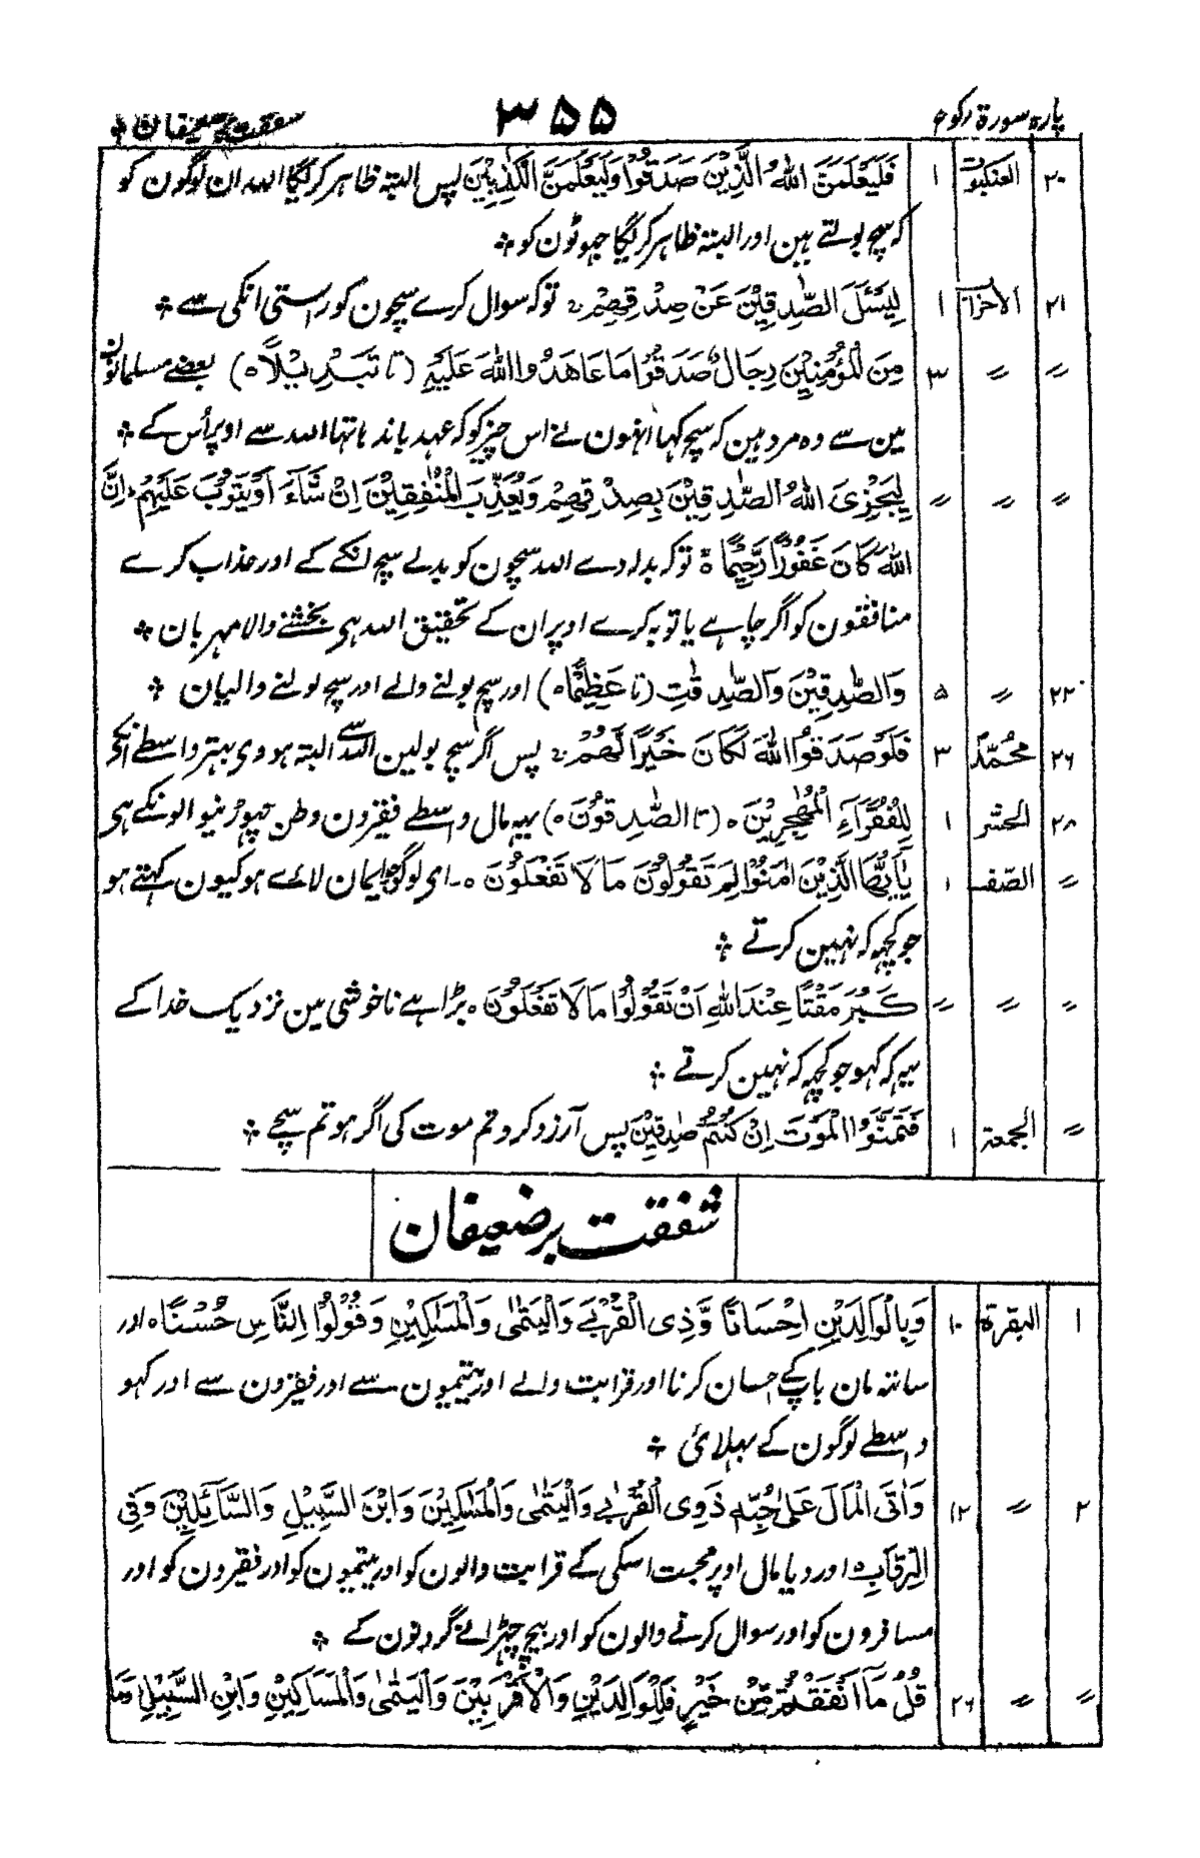 پارہ سورۃ رکوع ۳۵۵ شفقت بر ضعیفان ❖
۲۰ العنکبوت ۱ فَلَيَعْلَمَنَّ اللّٰهُ الَّذِيْنَ صَدَقُوْا وَلَيَعْلَمَنَّ الْكٰذِبِيْنَ پس البتہ ظاہر کریگا اللہ ان لوگون کو
کہ سچ بولتے ہین اور البتہ ظاہر کریگا جہوٹون کو ❖
۲۱ الاحزاب ۱ لِيَسْئَلَ الصّٰدِقِيْنَ عَنْ صِدْقِهِمْ توکہ سوال کرے سچون کو راستی انکی سے ❖
〃 〃 ۳ مِنَ الْمُؤْمِنِيْنَ رِجَالٌ صَدَقُوْا مَا عَاهَدُوا اللّٰهَ عَلَيْهِ (تا تَبْدِيْلًا ہ) بعضے مسلمانون
مین سے وہ مرد ہین کہ سچ کہا انہون نے اس چیز کو کہ عہد باندہا تہا اللہ سے اوپر اُس کے ❖
〃 〃 〃 لِيَجْزِىَ اللّٰهُ الصّٰدِقِيْنَ بِصِدْقِهِمْ وَيُعَذِّبَ الْمُنٰفِقِيْنَ اِنْ شَآءَ اَوْ يَتُوْبَ عَلَيْهِمْ اِنَّ
اللّٰهَ كَانَ غَفُوْرًا رَّحِيْمًا ہ توکہ بدلا دے اللہ سچون کو بدلے سچ انکے کے اور عذاب کرے
منافقون کو اگر چاہے یا توبہ کرے اوپر ان کے تحقیق اللہ ہی بخشنے والا مہربان ❖
۲۲ 〃 ۵ وَالصّٰدِقِيْنَ وَالصّٰدِقٰتِ (تا عَظِيْمًا ہ) اور سچ بولنے والے اور سچ بولنے والیان ❖
۲۶ محمّد ۳ فَلَوْ صَدَقُوا اللّٰهَ لَكَانَ خَيْرًا لَّهُمْ پس اگر سچ بولین اللہ سے البتہ ہووی بہتر واسطے انکے
۲۸ الحشر ۱ لِلْفُقَرَآءِ الْمُهٰجِرِيْنَ ہ (تا الصّٰدِقُوْنَ ہ) یہہ مال واسطے فقیرون وطن چہوڑنیوالونکے ہی
〃 الصّف ۱ يٰۤاَيُّهَا الَّذِيْنَ اٰمَنُوْا لِمَ تَقُوْلُوْنَ مَا لَا تَفْعَلُوْنَ ہ ای لوگو جو ایمان لائے ہو کیون کہتے ہو
جو کچہہ کہ نہین کرتے ❖
〃 〃 〃 كَبُرَ مَقْتًا عِنْدَ اللّٰهِ اَنْ تَقُوْلُوْا مَا لَا تَفْعَلُوْنَ ہ بڑا ہے ناخوشی مین نزدیک خدا کے
یہہ کہ کہو جو کچہہ کہ نہین کرتے ❖
〃 الجمعة ۱ فَتَمَنَّوُا الْمَوْتَ اِنْ كُنْتُمْ صٰدِقِيْنَ پس آرزو کرو تم موت کی اگر ہو تم سچے ❖
شفقت بر ضعیفان
۱ البقرة ۱۰ وَبِالْوَالِدَيْنِ اِحْسَانًا وَّذِى الْقُرْبٰى وَالْيَتٰمٰى وَالْمَسٰكِيْنِ وَقُوْلُوْا لِلنَّاسِ حُسْنًا ہ اور
ساتہہ مان باپ کے احسان کرنا اور قرابت والے اور یتیمون سے اور فقیرون سے اور کہو
واسطے لوگون کے بہلائی ❖
۲ 〃 ۱۲ وَاٰتَى الْمَالَ عَلٰى حُبِّهٖ ذَوِى الْقُرْبٰى وَالْيَتٰمٰى وَالْمَسٰكِيْنَ وَابْنَ السَّبِيْلِ وَالسَّآئِلِيْنَ وَفِى
الرِّقَابِ ہ اور دیا مال اوپر محبت اسکی کے قرابت والون کو اور یتیمون کو اور فقیرون کو اور
مسافرون کو اور سوال کرنے والون کو اور بیچ چہڑانے گردنون کے ❖
〃 〃 ۲۶ قُلْ مَاۤ اَنْفَقْتُمْ مِّنْ خَيْرٍ فَلِلْوَالِدَيْنِ وَالْاَقْرَبِيْنَ وَالْيَتٰمٰى وَالْمَسَاكِيْنِ وَابْنِ السَّبِيْلِ وَمَا